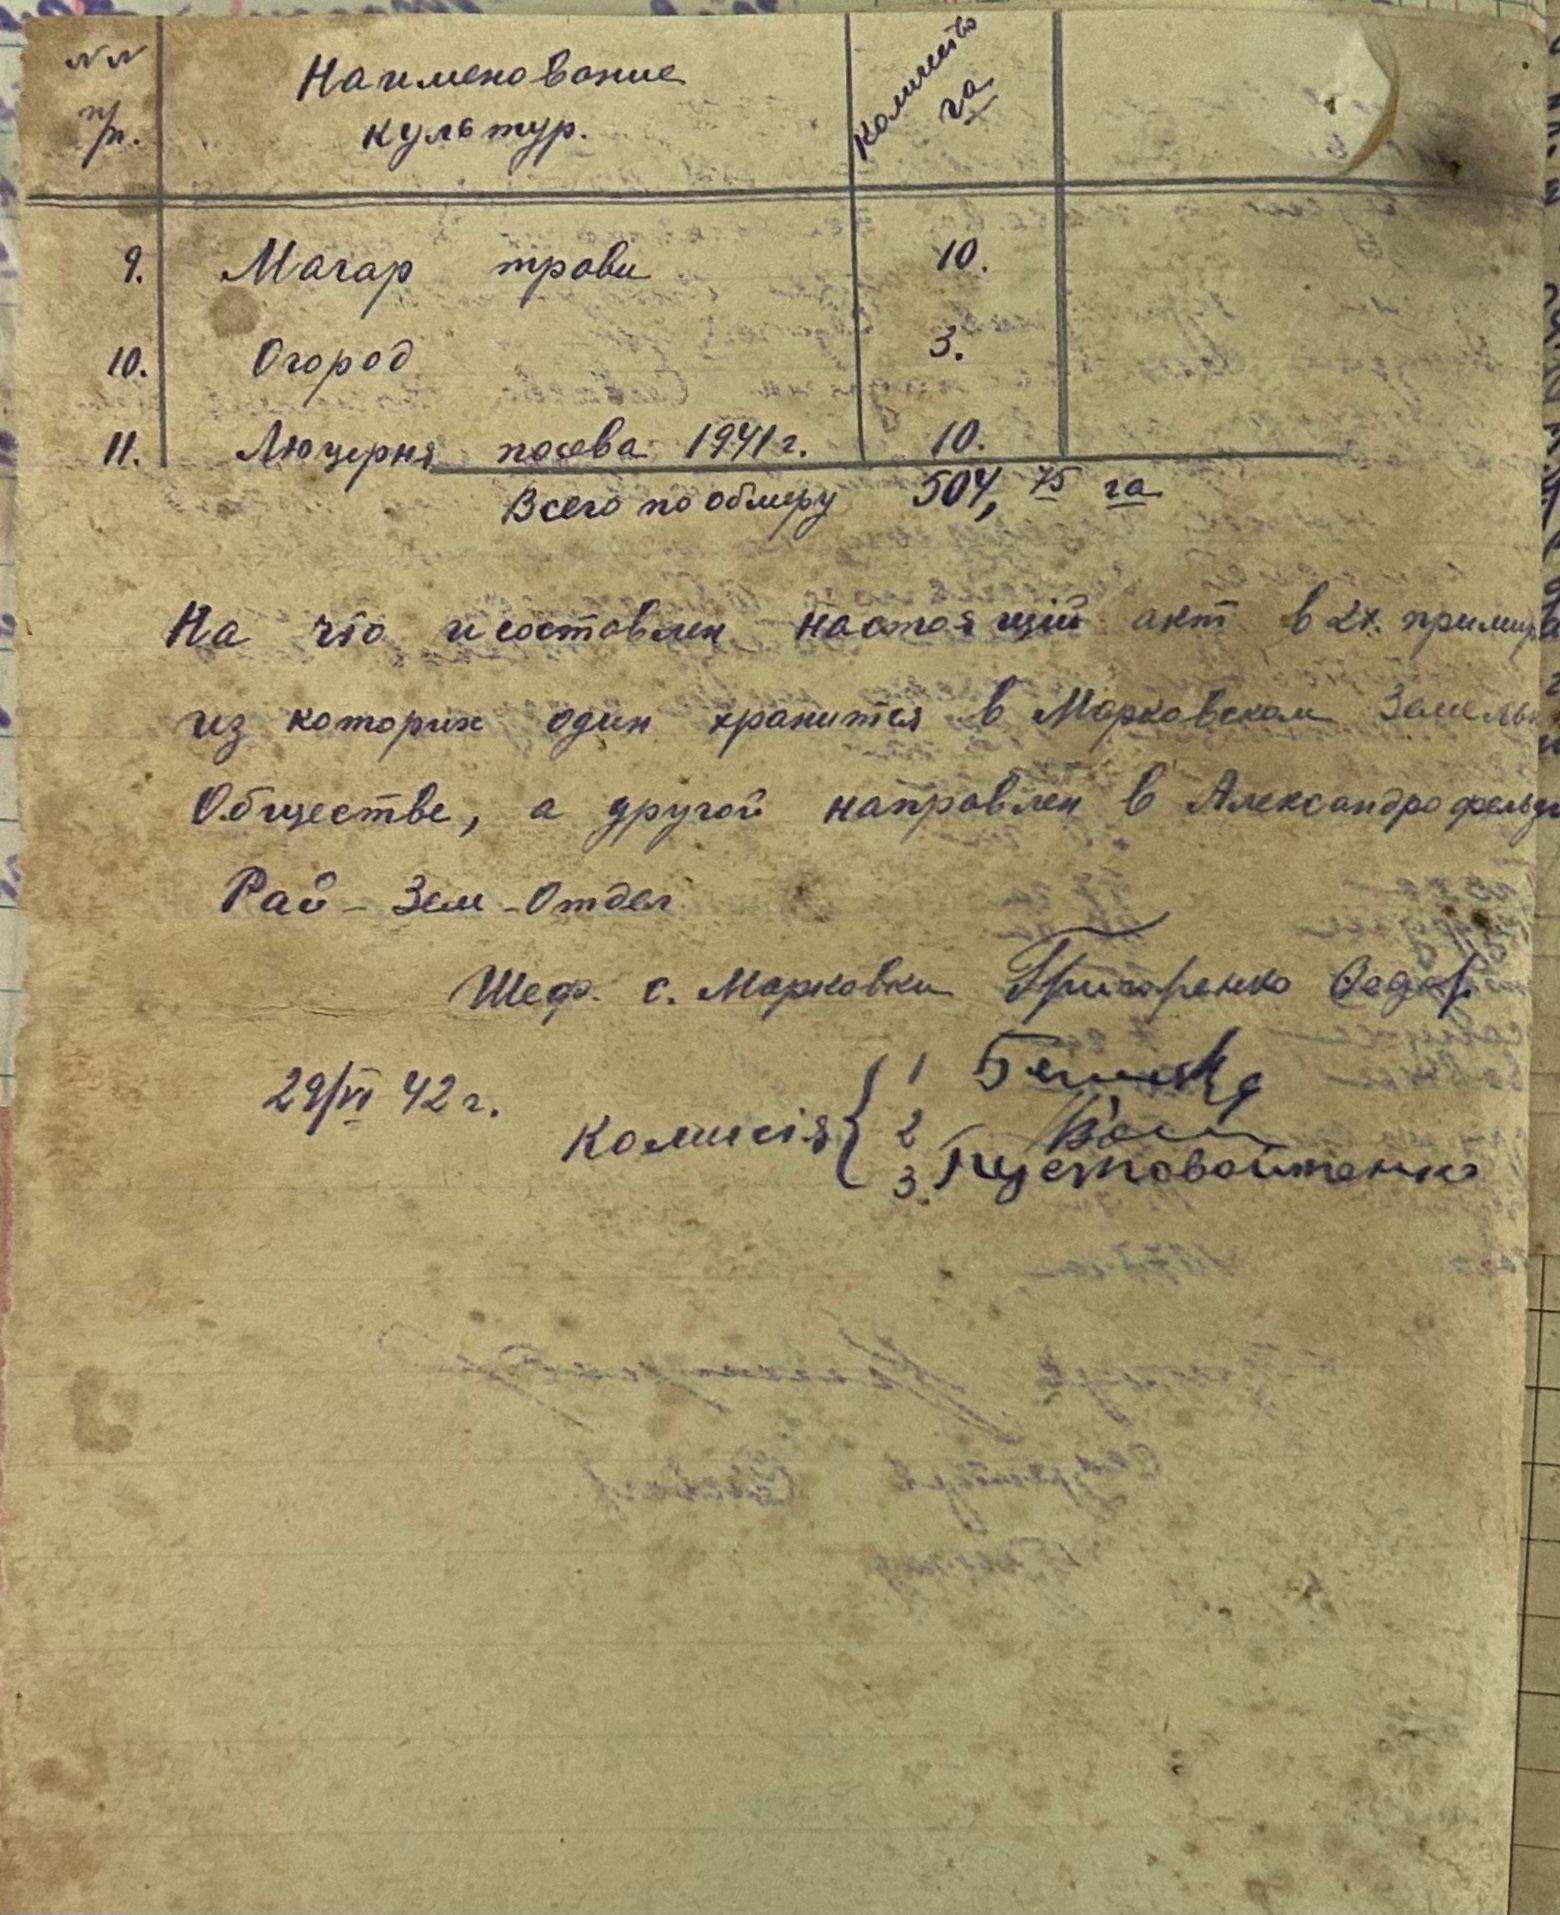 NN Наименование Количество
п/п. культур. га
9. Магар трави 10.
10. Огород 3.
11. Люцерня посева 1941 г. 10.
Всего по обмеру 504,75 га
На что и составлен настоящий акт в 2х. примир
из которих один хранится в Марковском Земельн
Обществе, а другой направлен в Александрофельд
Рай-Зем-Отдел
Шеф. с. Марковки Григоренко Федор
29/VI 42 г.
Комисія 1
2
3. Пустовойтенко